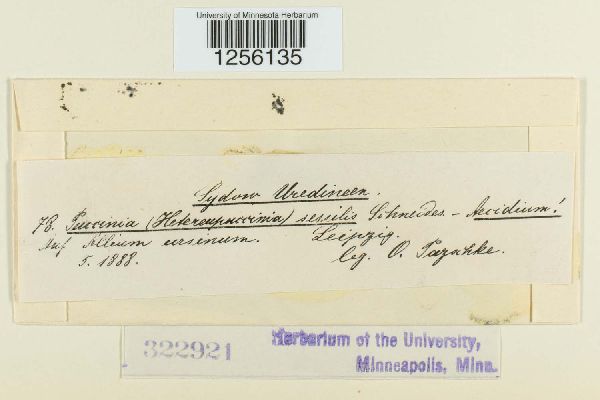 University of Minnesota Herbarium
1256135
Sydow Uredineen.
78. Puccinia (Heteropuccinia) sessilis Schneider. – Aecidium!
Auf Allium ursinum. Leipzig.
5. 1888. leg. O. Pazschke.
322921
Herbarium of the University,
Minneapolis, Minn.